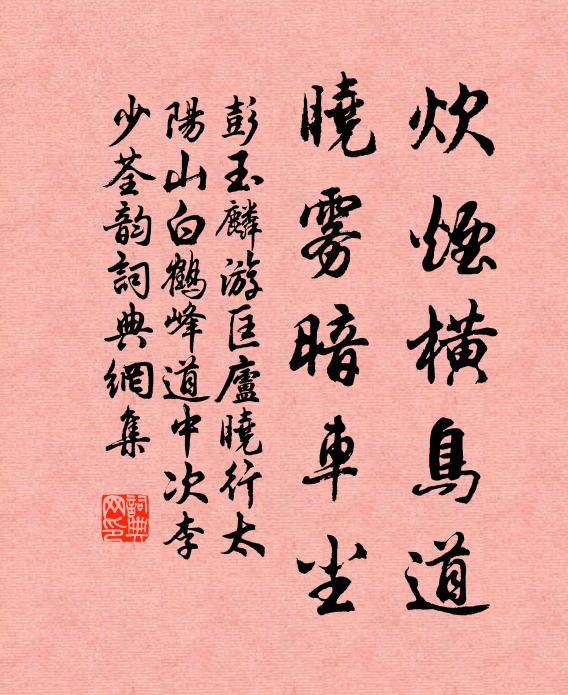 炊煙横鳥道
曉雾暗車尘
彭玉麟游匡廬曉行太
陽山白鶴峰道中次李
少荃韵詞典網集
詞典网印